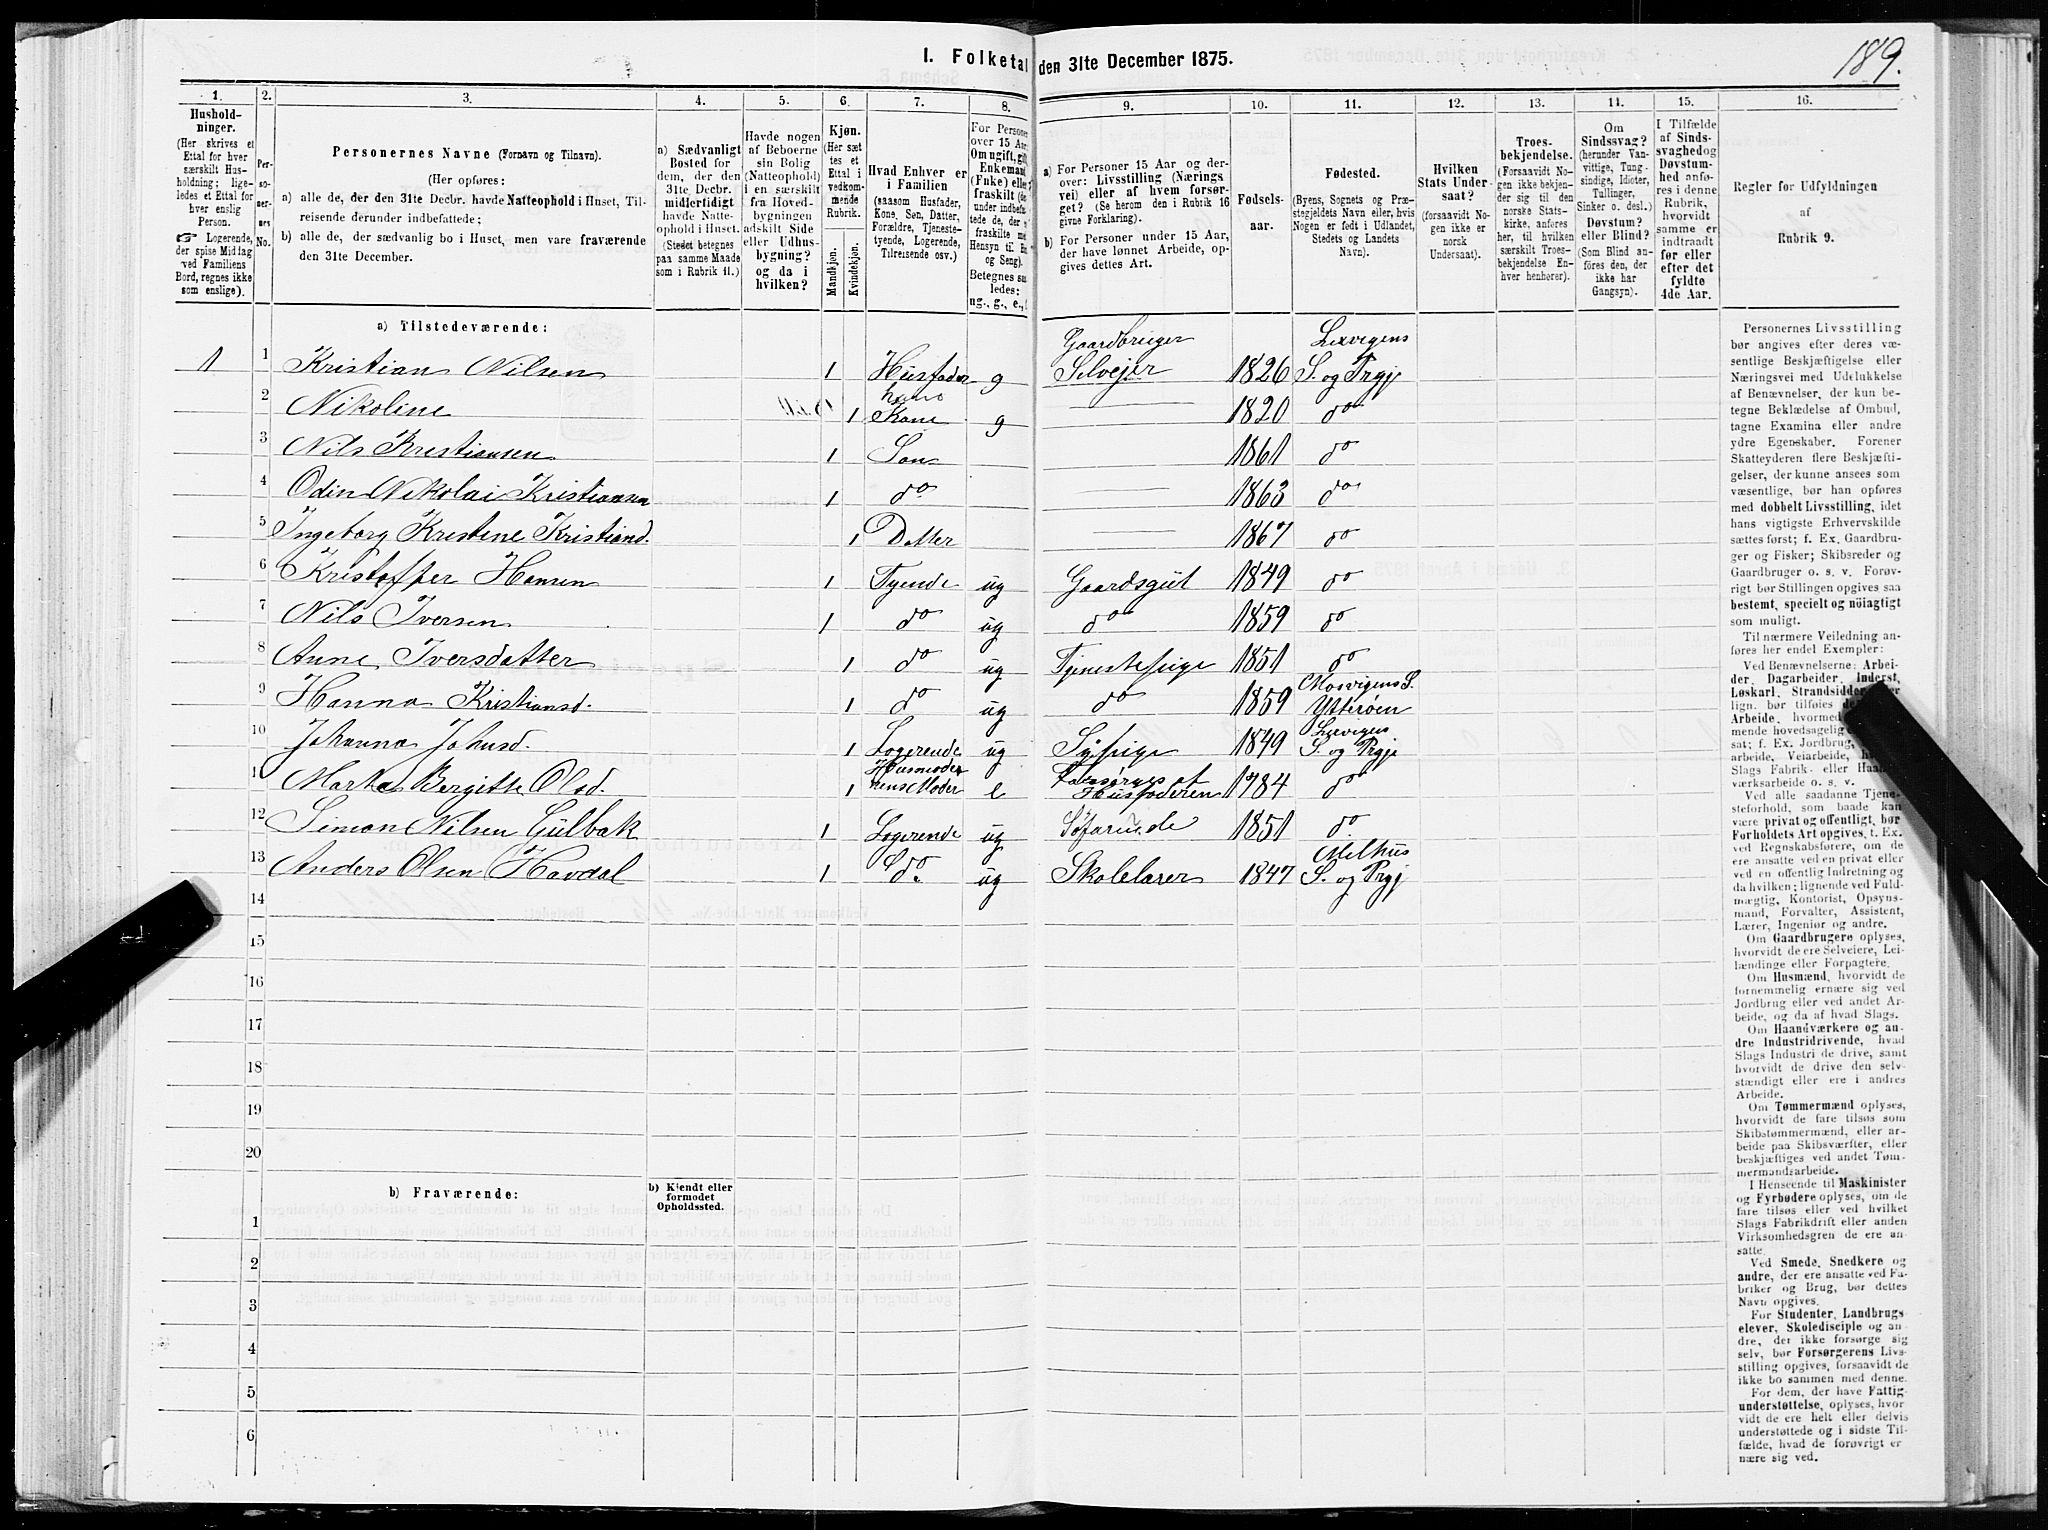 I. Folketal den 31te December 1875.
189.
1.
2.
3.
4.
5.
6.
7.
8.
9.
10.
11.
12.
13.
14.
15.
16.
Hushold-
ninger.
(Her skrives et
Ettal for hver
særskilt Hus-
holdning; lige-
ledes et Ettal for
hver enslig
Person.
Logerende,
der spise Middag
ved Familiens
Bord, regnes ikke
som enslige).
Per-
so-
ner-
nes
No.
Personernes Navne (Fornavn og Tilnavn).
(Her opføres:
a) alle de, der den 31te Decbr. havde Natteophold i Huset, Til-
reisende derunder indbefattede;
b) alle de, der sædvanlig bo i Huset, men vare fraværende
den 31te December.
a) Sædvanligt
Bosted for
dem, der den
31te Decbr.
midlertidigt
havde Natte-
ophold i Huset.
(Stedet betegnes
paa samme Maade
som i Rubrik 11.)
Havde nogen
af Beboerne
sin Bolig
(Natteophold)
i en særskilt
fra Hoved-
bygningen
adskilt Side
eller Udhus-
bygning?
og da i
hvilken?
Kjøn.
(Her sæt
tes et
Ettal i
vedkom-
mende
Rubrik.
Mandkjøn.
Kvindekjøn.
Hvad Enhver er
i Familien
(saasom Husfader,
Kone, Søn, Datter,
Forældre, Tjeneste-
tyende, Logerende,
Tilreisende osv.)
For Personer
over 15 Aar:
Om ugift, gift,
Enkemand
(Enke) eller
fraskilt
Betegnes saa-
ledes:
ug., g., e.,
a) For Personer 15 Aar og der-
over: Livsstilling (Nærings
vei) eller af hvem forsør-
get? (Se herom den i Rubrik 16
givne Forklaring).
b) For Personer under 15 Aar,
der have lønnet Arbeide, op-
gives dettes Art.
Fødsels-
aar.
Fødested.
(Byens, Sognets og Præ-
stegjeldets Navn eller, hvis
Nogen er født i Udlandet,
Stedets og Landets
Navn).
Hvilken
Stats Under-
saat?
(forsaavidt No-
gen ikke er
norsk
Undersaat).
Troes-
bekjendelse.
(Forsaavidt No-
gen ikke bekjen-
der sig til den
norske Stats-
kirke, anføres
her, til hvilken
særskilt Troes-
bekjendelse En-
hver henhører).
Om
Sindssvag?
(herunder Van-
vittige, Tung-
sindige, Idioter,
Tullinger,
Sinker o. desl.)
Døvstum?
eller Blind?
(Som Blind an-
føres den, der
ikke har
Gangsyn).
I Tilfælde
af Sinds-
svaghed og
Døvstum-
hed anfø-
res i denne
Rubrik,
hvorvidt
samme er
indtraadt
før eller
efter det
fyldte
4de Aar.
Regler for Udfyldningen
af
Rubrik 9.
a) Tilstedeværende:
1 1 Kristian Nilsen 1 Husfader g Gaardbruger Selvejer 1826 Lexvigens S. og Prgj
2 Nikoline 1 hans Kone g 1820 do
3 Nils Kristiansen 1 Søn 1861 do
4 Odin Nikolai Kristiansen 1 do 1863 do
5 Ingeborg Kristine Kristiand. 1 Datter 1867 do
6 Kristoffer Hansen 1 Tyende ug Gaardsgut 1849 do
7 Nils Iversen 1 do ug do 1859 do
8 Anne Iversdatter 1 do ug Tjenestepige 1851 do
9 Hanna Kristiansd. 1 do ug do 1859 Mosvigens S. Ytterøen
10 Johanna Johnsd. 1 Logerende ug Sypige 1849 Lexvigens S. og Prgj
11 Marta Bergitte Olsd. 1 Husmoderens Moder e Forsørges af Husfaderen 1784 do
12 Simon Nilsen Gulbak 1 Logerende ug Søfarende 1851 do.
13 Anders Olsen Havdal 1 do. ug Skolelærer 1847 Melhus S. og Prgj
14
15
16
17
18
19
20
b) Fraværende:
b) Kjendt eller
formodet
Opholdssted.
1
2
3
4
5
6
Personernes Livsstilling
bør angives efter deres væ-
sentlige Beskjæftigelse eller
Næringsvei med Udelukkelse
af Benævnelser, der kun be-
tegne Beklædelse af Ombud,
tagne Examina eller andre
ydre Egenskaber. Forener
Skatteyderen flere Beskjæfti-
gelser, der kunne ansees som
væsentlige, bør han opføres
med dobbelt Livsstilling, idet
hans vigtigste Erhvervskilde
sættes først; f. Ex. Gaardbru-
ger og Fisker; Skibsreder og
Gaardbruger o. s. v. Forøv-
rigt bør Stillingen opgives saa
bestemt, specielt og nöiagtigt
som muligt.
Til nærmere Veiledning an-
føres her endel Exempler:
Ved Benævnelserne: Arbei-
der, Dagarbeider, Inderst,
Løskarl, Strandsidder
lign. bør tilføies
Arbeide, hvormed
mende hovedsagelig
sat; f. Ex. Jordbrug,
arbeide, Veiarbeide,
Slags Fabrik- eller
værksarbeide o. s. v.
Ved alle saadanne Tjene-
steforhold, som baade kan
være privat og offentligt, bør
Forholdets Art opgives, t. Ex.
ved Regnskabsførere, om de
ere ansatte ved en privat eller
ved en offentlig Indretning og
da hvilken; lignende ved Fuld-
mægtig, Kontorist, Opsyns-
mand, Forvalter, Assistent,
Lærer, Ingeniør og andre.
Om Gaardbrugere oplyses,
hvorvidt de ere Selveiere, Lei-
lændinge eller Forpagtere.
Om Husmænd, hvorvidt de
fornemmelig ernære sig ved
Jordbrug eller ved andet Ar-
beide, og da af hvad Slags.
Om Haandværkere og an-
dre Industridrivende, hvad
Slags Industri de drive, samt
hvorvidt de drive den selv-
stændigt eller ere i andres
Arbeide.
Om Tømmermænd oplyses,
hvorvidt de fare tilsøs som
Skibstømmermænd, eller ar-
beide paa Skibsværfter, eller
beskjæftiges ved andet Tøm-
mermandsarbeide.
I Henseende til Maskinister
og Fyrbødere oplyses, om de
fare tilsøs eller ved hvilket
Slags Fabrikdrift eller anden
Virksomhedsgren de ere an-
satte.
Ved Smede, Snedkere og
andre, der ere ansatte ved Fa-
briker og Brug, bør dettes
Navn opgives.
For Studenter, Landbrugs
elever, Skoledisciple og an-
dre, der ikke forsørge sig
selv, bør Forsørgerens Livs-
stilling opgives, forsaavidt de
ikke bo sammen med denne.
For dem, der have Fattig-
understøttelse, oplyses, hvor
vidt de ere helt eller delvis
understøttede og i sidste Til-
fælde, hvad de forøvrigt er
nære sig ved.